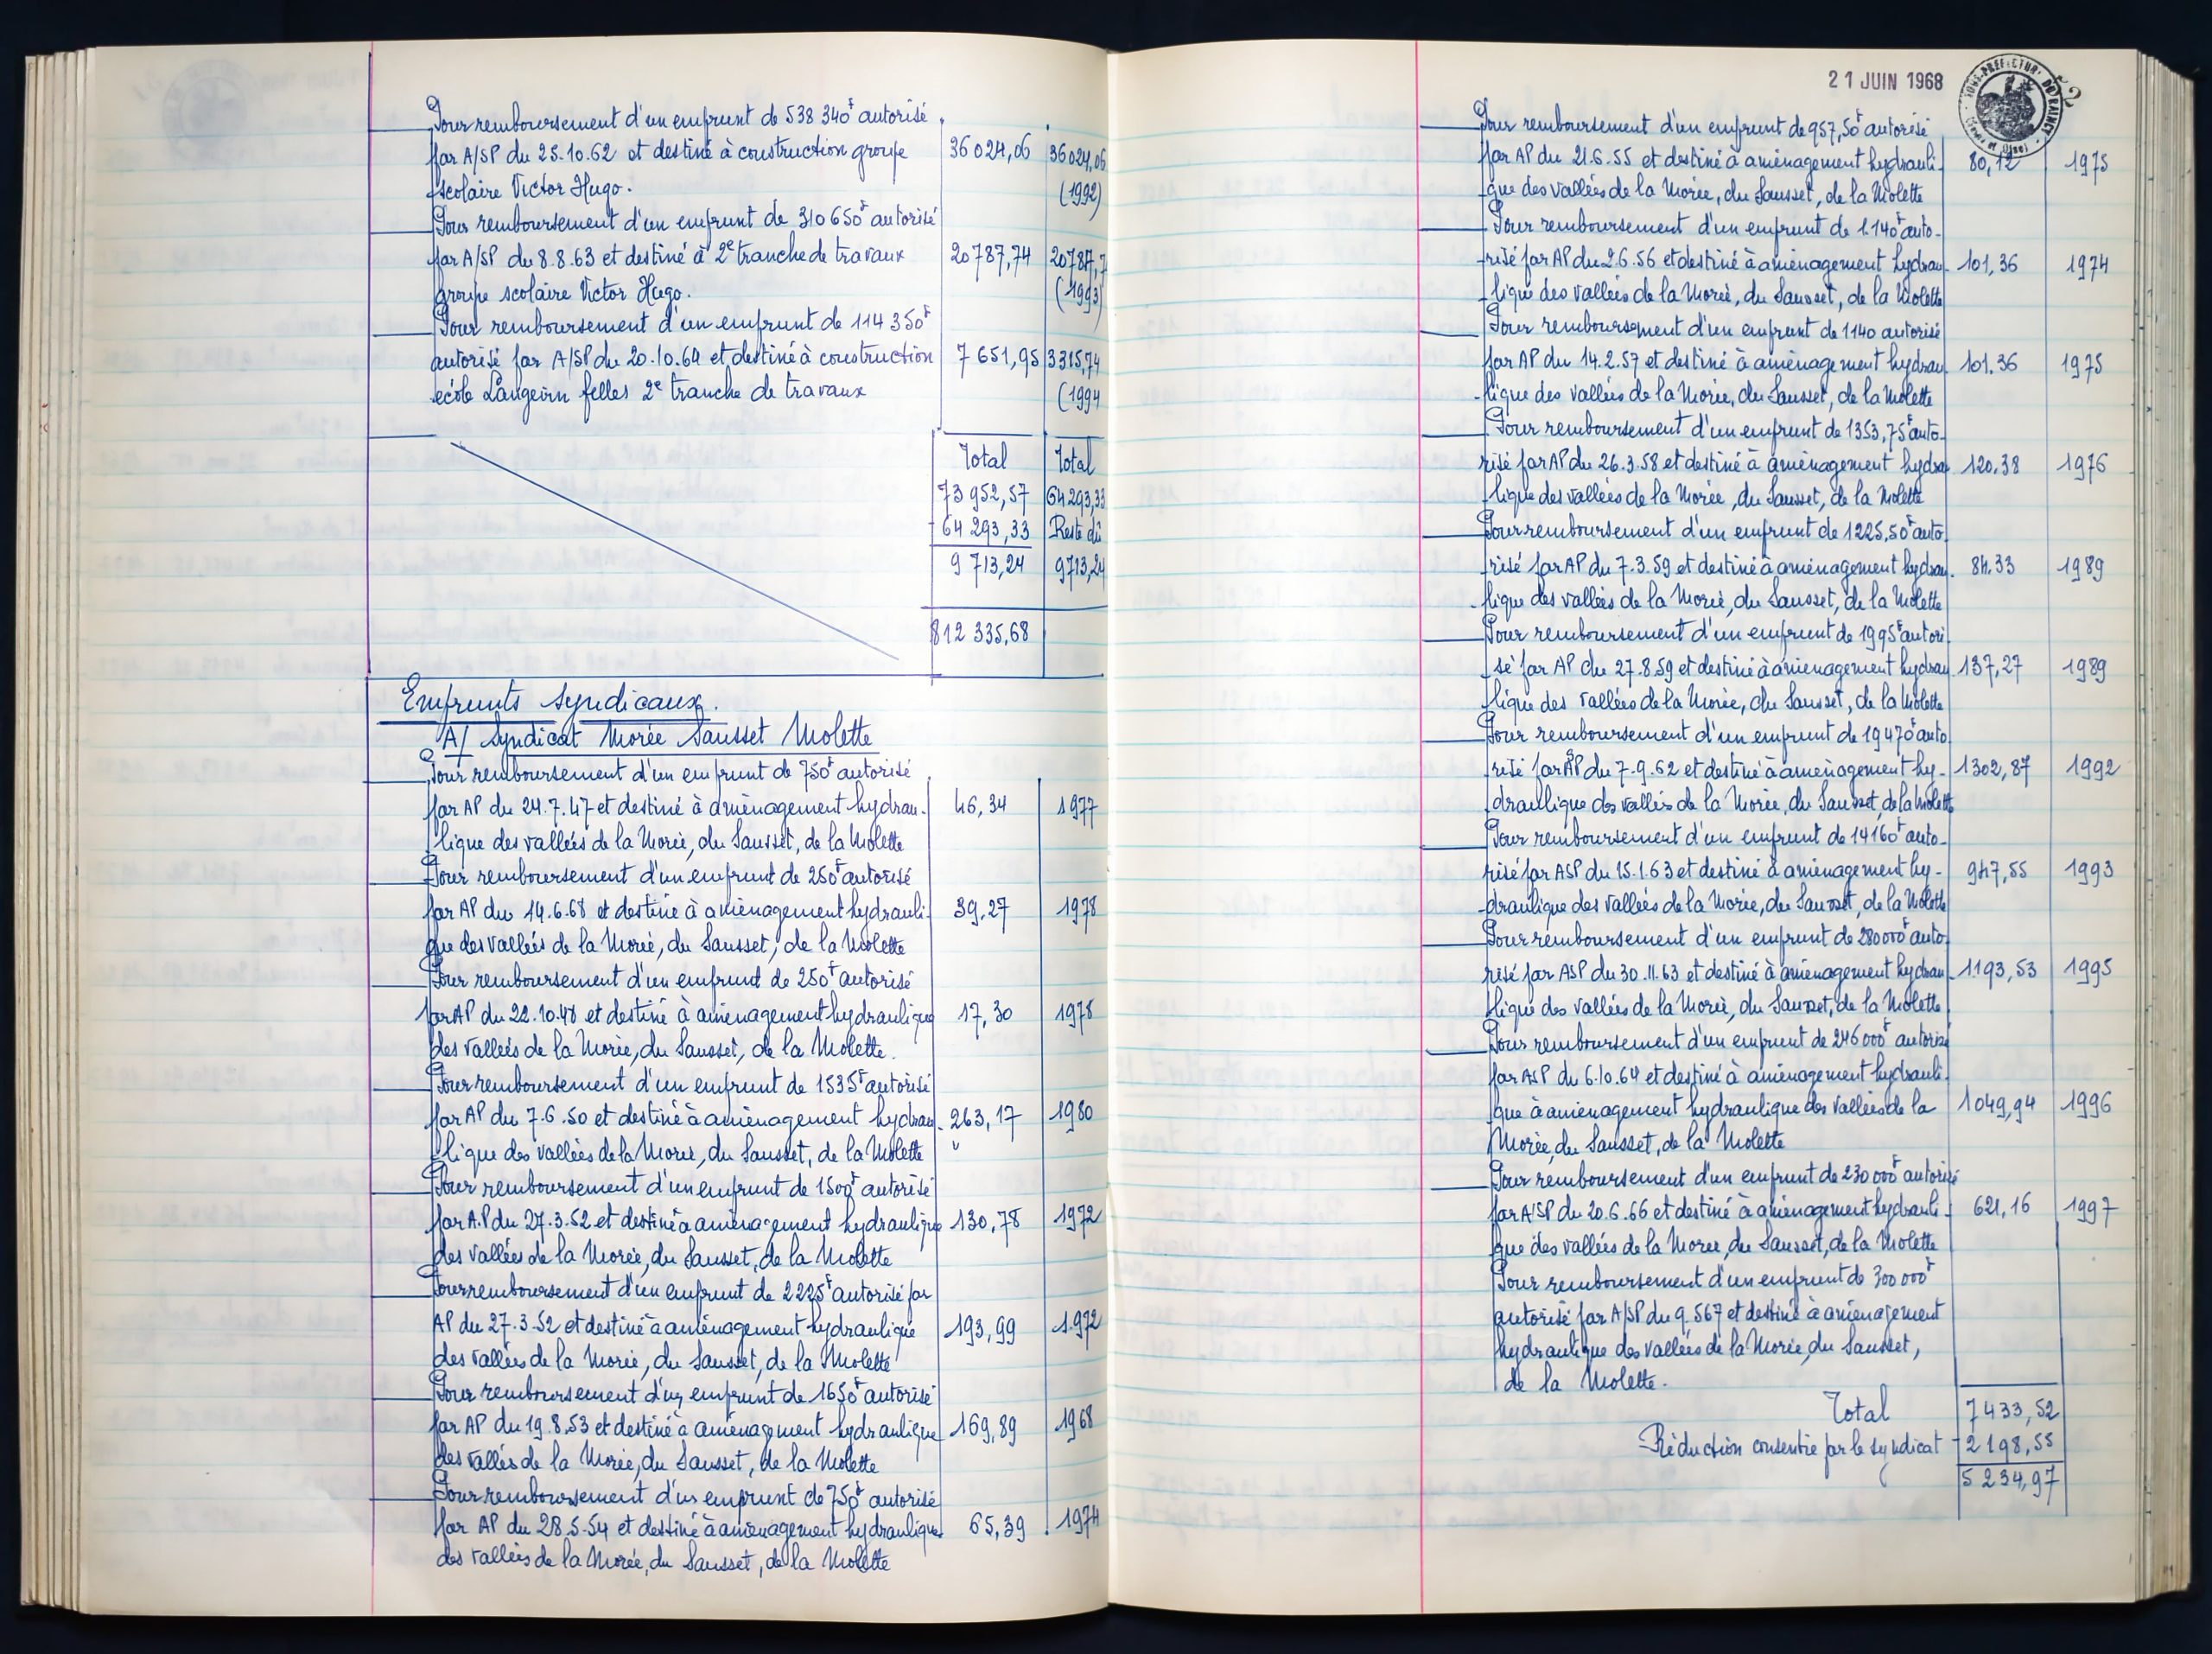 Pour remboursement d'un emprunt de 538 340F autorisé
par A/SP du 25.10.62 et destiné à construction groupe 36 024,06 36 024,06
scolaire Victor Hugo. (1992)
Pour remboursement d'un emprunt de 310 650F autorisé
par A/SP du 8.8.63 et destiné à 2e tranche de travaux 20 787,74 20 787,7
groupe scolaire Victor Hugo. (1993)
Pour remboursement d'un emprunt de 114 350F
autorisé par A/SP du 20.10.64 et destiné à construction 7 651,95 3315,74
école Langevin filles 2e tranche de travaux (1994
Total Total
73 952,57 64 293,33
- 64 293,33 Reste dû
9 713,24 9713,24
812 335,68
Emprunts syndicaux.
A/ Syndicat Morée Sausset Molette
Pour remboursement d'un emprunt de 750F autorisé
par AP du 24.7.47 et destiné à aménagement hydrau- 46,34 1977
lique des vallées de la Morée, du Sausset, de la Molette
Pour remboursement d'un emprunt de 250F autorisé
par AP du 14.6.68 et destiné à aménagement hydrauli- 39,27 1978
que des vallées de la Morée, du Sausset, de la Molette
Pour remboursement d'un emprunt de 250F autorisé
par AP du 22.10.48 et destiné à aménagement hydraulique 17,30 1978
des vallées de la Morée, du Sausset, de la Molette.
Pour remboursement d'un emprunt de 1535F autorisé
par AP du 7.6.50 et destiné à aménagement hydrau- 263,17 1980
lique des vallées de la Morée, du Sausset, de la Molette "
Pour remboursement d'un emprunt de 1500F autorisé
par A.P du 27.3.52 et destiné à aménagement hydraulique 130,78 1972
des vallées de la Morée, du Sausset, de la Molette
Pour remboursement d'un emprunt de 2225F autorisé par
AP du 27.3.52 et destiné à aménagement hydraulique 193,99 1972
des vallées de la Morée, du Sausset, de la Molette
Pour remboursement d'un emprunt de 1650F autorisé
par AP du 19.8.53 et destiné à aménagement hydraulique 169,89 1968
des vallées de la Morée, du Sausset, de la Molette
Pour remboursement d'un emprunt de 750F autorisé
par AP du 28.5.54 et destiné à aménagement hydraulique 65,39 1974
des vallées de la Morée, du Sausset, de la Molette
21 JUIN 1968
SOUS-PRÉFECTURE DU RAINCY
Pour remboursement d'un emprunt de 957,50F autorisé
par AP du 21.6.55 et destiné à aménagement hydrauli- 80,12 1975
que des vallées de la Morée, du Sausset, de la Molette
Pour remboursement d'un emprunt de 1.140F auto-
risé par AP du 2.6.56 et destiné à aménagement hydrau- 101,36 1974
lique des vallées de la Morée, du Sausset, de la Molette
Pour remboursement d'un emprunt de 1140 autorisé
par AP du 14.2.57 et destiné à aménagement hydrau- 101.36 1975
lique des vallées de la Morée, du Sausset, de la Molette
Pour remboursement d'un emprunt de 1353,75F auto-
risé par AP du 26.3.58 et destiné à aménagement hydrau- 120.38 1976
lique des vallées de la Morée, du Sausset, de la Molette
Pour remboursement d'un emprunt de 1225,50F auto-
risé par AP du 7.3.59 et destiné à aménagement hydrau- 84.33 1989
lique des vallées de la Morée, du Sausset, de la Molette
Pour remboursement d'un emprunt de 1995F autori
sé par AP du 27.8.59 et destiné à aménagement hydrau 137,27 1989
lique des vallées de la Morée, du Sausset, de la Molette
Pour remboursement d'un emprunt de 19470F auto
risé par ASP du 7.9.62 et destiné à aménagement hy- 1302,87 1992
draullique des vallées de la Morée, du Sausset, de la Molette
Pour remboursement d'un emprunt de 14160F auto-
risé par ASP du 15.1.63 et destiné à aménagement hy- 947,55 1993
draulique des vallées de la Morée, du Sausset, de la Molette
Pour remboursement d'un emprunt de 280000F auto
risé par ASP du 30.11.63 et destiné à aménagement hydrau- 1193,53 1995
lique des vallées de la Morée, du Sausset, de la Molette
Pour remboursement d'un emprunt de 246000F autorisé
par ASP du 6.10.64 et destiné à aménagement hydrauli-
que à aménagement hydraulique des vallées de la 1049,94 1996
Morée, du Sausset, de la Molette
Pour remboursement d'un emprunt de 230 000F autorisé
par A/SP du 20.6.66 et destiné à aménagement hydrauli- 621,16 1997
que des vallées de la Morée, du Sausset, de la Molette
Pour remboursement d'un emprunt de 300 000F
autorisé par A/SP du 9.567 et destiné à aménagement
hydraulique des vallées de la Morée, du Sausset,
de la Molette.
Total 7433,52
Réduction consentie par le syndicat - 2198,55
5 234,97